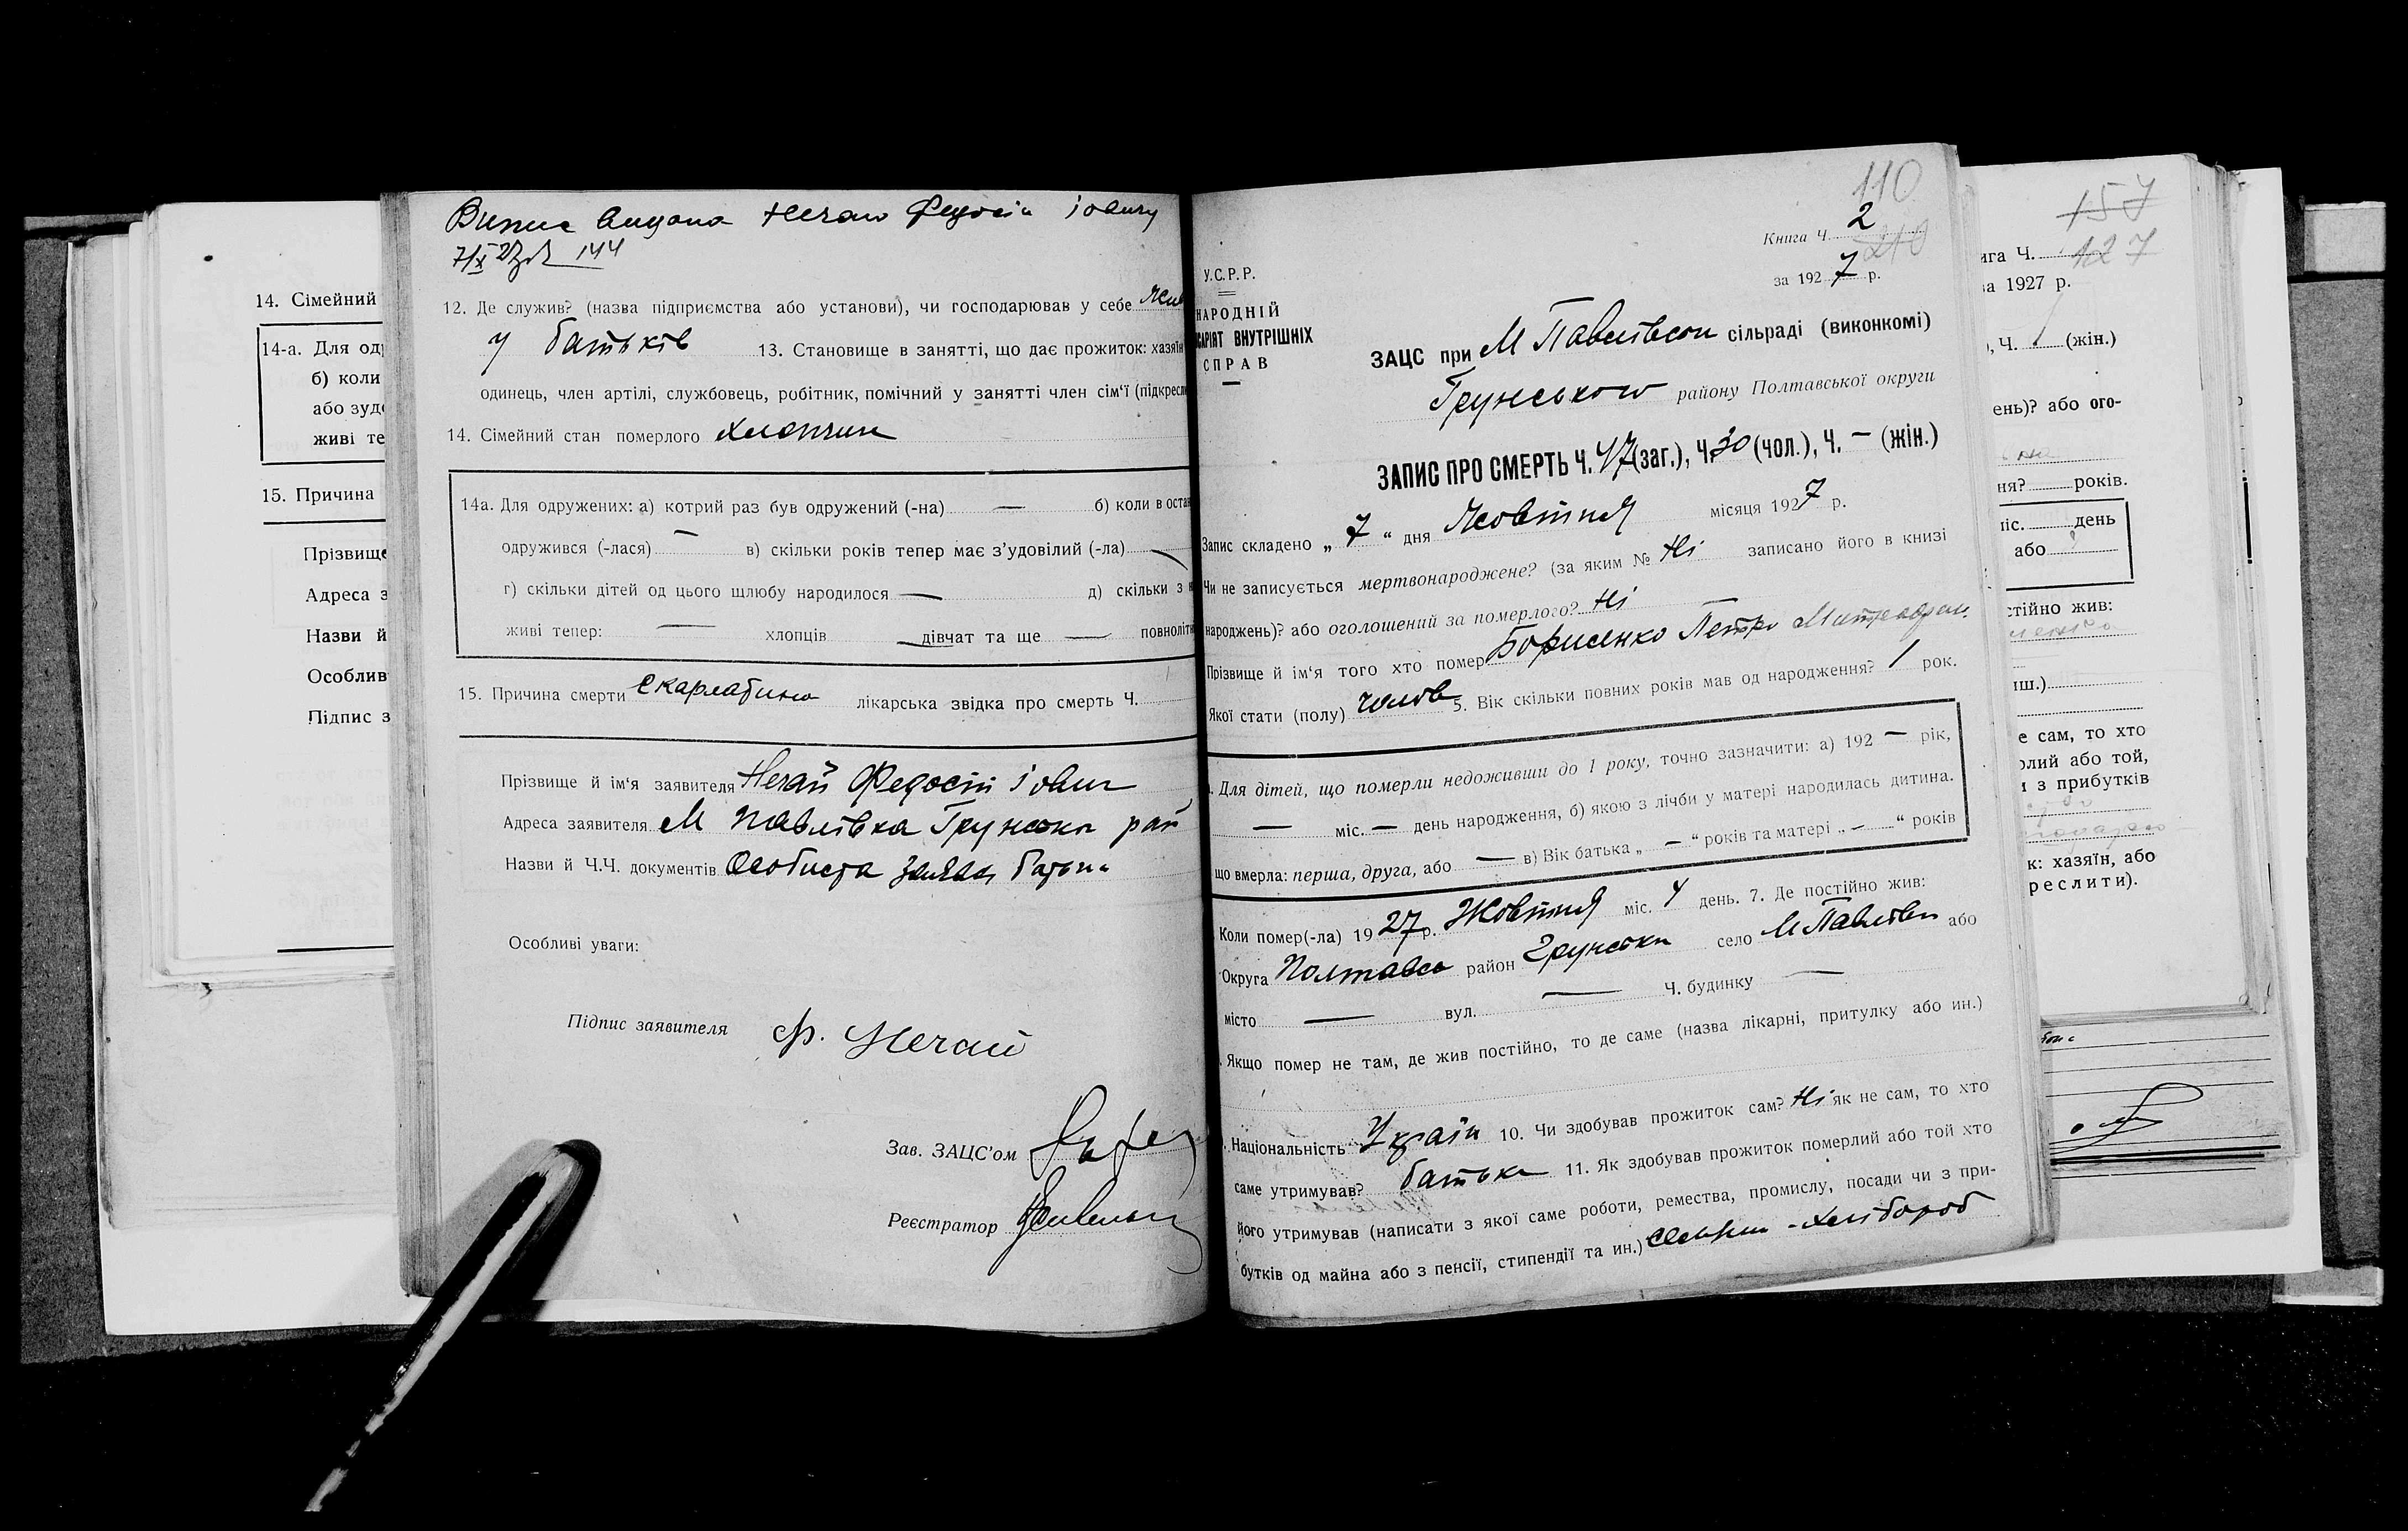 14. Сімейний
14-а. Для од
б) коли
або зуд
живі те
15. Причина
Прізвище
Адреса з
Назви й
Особлив
Підпис з
Випис видана Нечаю Федосію Іовичу
7/X 27 144
12. Де служив? (назва підприємства або установи), чи господарював у себе
у батьків 13. Становище в занятті, що дає прожиток: хазяїн
одинець, член артілі, службовець, робітник, помічний у занятті член сім‘ї (підкресли
14. Сімейний стан померлого хлопчик
14а. Для одружених: а) котрий раз був одружений (-на) — б) коли в оста
одружився (-лася) — в) скільки років тепер має з’удовілий (-ла) —
г) скільки дітей од цього шлюбу народилося — д) скільки з н
живі тепер: — хлопців — дівчат та ще — повноліт
15. Причина смерти Скарлатина лікарська звідка про смерть Ч.
Прізвище й ім‘я заявителя Нечай Федосій Іович
Адреса заявителя М Павлівка Грунськ рай
Назви й Ч.Ч. документів Особиста заява батька
Особливі уваги:
Підпис заявителя Ф. Нечай
Зав. ЗАЦС’ом
Реєстратор
110
Книга Ч. 2
210
за 1927 р.
У.С.Р.Р.
НАРОДНІЙ
САРІЯТ ВНУТРІШНІХ
СПРАВ
ЗАЦС при М Павлівськ сільраді (виконкомі)
Грунського району Полтавської округи
ЗАПИС ПРО СМЕРТЬ Ч. 47 (заг.), Ч. 30 (чол.), Ч. — (жін.)
Запис складено „ 7 “ дня Жовтня місяця 1927 р.
Чи не записується мертвонароджене? (за яким № Ні записано його в книзі
народжень)? або оголошений за померлого? Ні
Прізвище й ім‘я того хто помер Борисенко Петро Митрофан.
Якої стати (полу) чолов 5. Вік скільки повних років мав од народження? 1 рок.
. Для дітей, що померли недоживши до 1 року, точно зазначити: а) 192 — рік,
— міс. — день народження, б) якою з лічби у матері народилась дитина.
що вмерла: перша, друга, або — в) Вік батька „ — “ років та матері „ — “ років
Коли помер(-ла) 1927 р. Жовтня міс. 4 день. 7. Де постійно жив:
Округа Полтавсь район Грунськи село М Павлівка або
місто — вул. — Ч. будинку —
. Якщо помер не там, де жив постійно, то де саме (назва лікарні, притулку або ин.)
. Національність Україн 10. Чи здобував прожиток сам? Ні як не сам, то хто
саме утримував? батьки 11. Як здобував прожиток померлий або той хто
його утримував (написати з якої саме роботи, ремества, промислу, посади чи з при-
бутків од майна або з пенсії, стипендії та ин.) хлібороб
157
127
ига Ч.
за 1927 р.
), Ч. (жін.)
ень)? або ого-
ня? років.
міс. день
або
стійно жив:
иш.)
е сам, то хто
рлий або той,
и з прибутків
к: хазяїн, або
реслити).